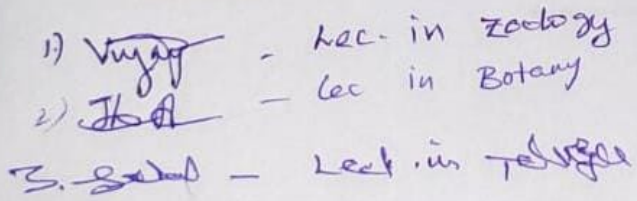 1) Vijay - Lec. in Zoology
2) - Lec in Botany
3. - Lect. in Telugu